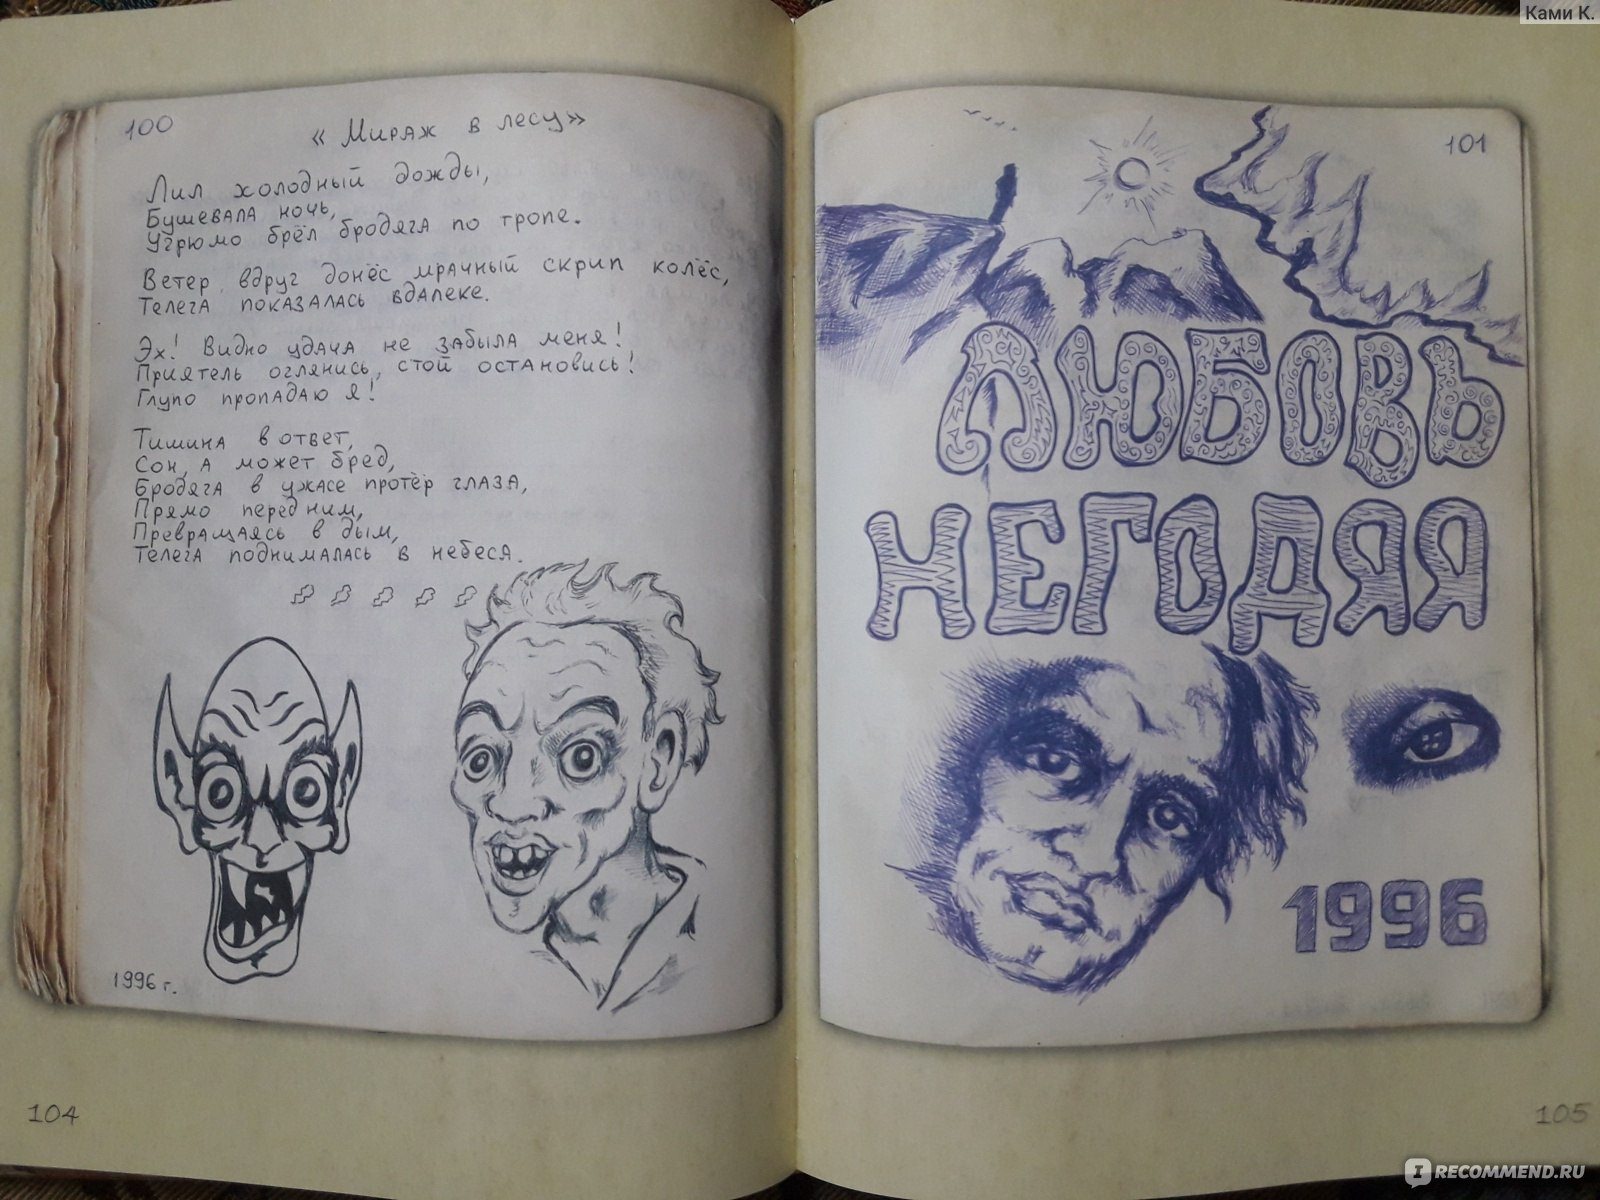 Ками К.
100
«Мираж в лесу»
Лил холодный дождь,
Бушевала ночь,
Угрюмо брёл бродяга по тропе.
Ветер вдруг донёс мрачный скрип колёс,
Телега показалась вдалеке.
Эх! Видно удача не забыла меня!
Приятель оглянись, стой остановись!
Глупо пропадаю я!
Тишина в ответ,
Сон, а может бред,
Бродяга в ужасе протёр глаза,
Прямо перед ним,
Превращаясь в дым,
Телега поднималась в небеса.
1996 г.
104
101
ЛЮБОВЬ
НЕГОДЯЯ
1996
105
IRECOMMEND.RU